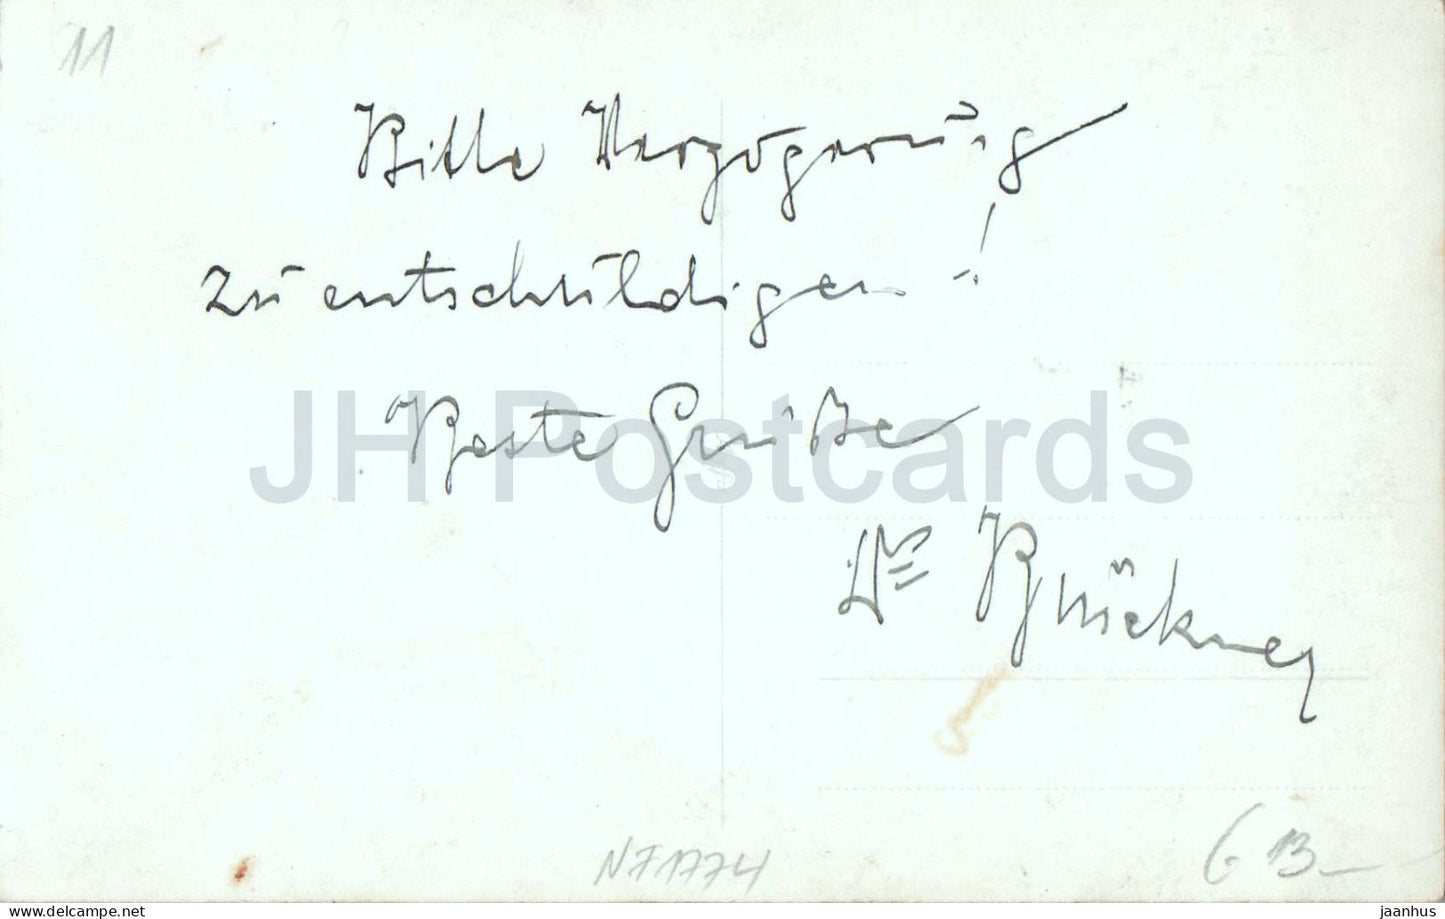 11
Bitte Verzögerung
zu entschuldigen!
Beste Grüße
JH Postcards
Dr Brückner
NF1774
G 13.-
www.delcampe.net
jaanhus